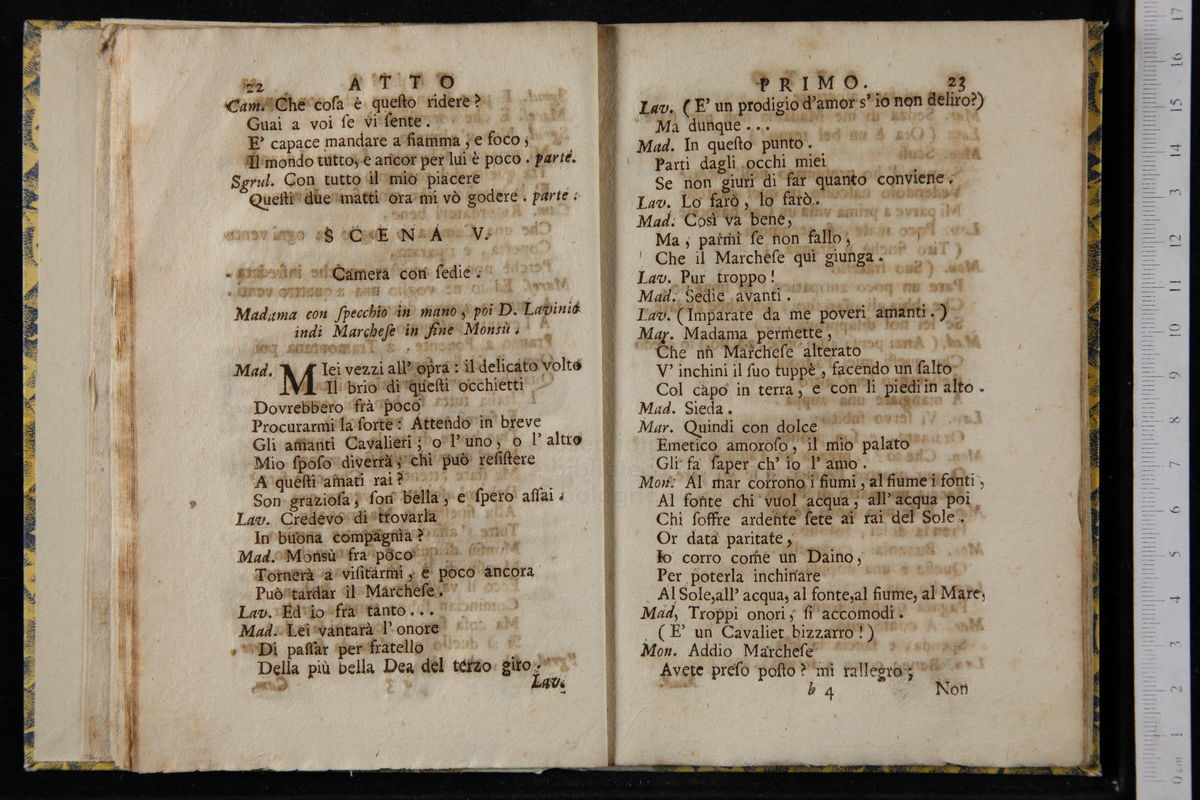 22 ATTO
Cam. Che coſa è queſto ridere?
Guai a voi ſe vi ſente.
E' capace mandare a fiamma, e foco,
Il mondo tutto, e ancor per lui è poco. parte.
Sgrul. Con tutto il mio piacere
Queſti due matti ora mi vò godere. parte.
SCENA V.
Camera con ſedie.
Madama con ſpecchio in mano, poi D. Lavinio
indi Marcheſe in fine Monsù.
Mad. MIei vezzi all' opra: il delicato volto
Il brio di queſti occhietti
Dovrebbero frà poco
Procurarmi la ſorte: Attendo in breve
Gli amanti Cavalieri; o l' uno, o l' altro
Mio ſpoſo diverrà; chi può reſiſtere
A queſti amati rai?
Son grazioſa, ſon bella, e ſpero aſſai.
Lav. Credevo di trovarla
In buona compagnìa?
Mad. Monsù fra poco
Tornerà a viſitarmi, e poco ancora
Può tardar il Marcheſe.
Lav. Ed io fra tanto...
Mad. Lei vantarà l' onore
Di paſſar per fratello
Della più bella Dea del terzo giro.
Lav.
PRIMO. 23
Lav. (E' un prodigio d'amor s' io non deliro?)
Ma dunque...
Mad. In queſto punto.
Parti dagli occhi miei
Se non giuri di far quanto conviene.
Lav. Lo farò, lo farò.
Mad. Così va bene,
Ma, parmi ſe non fallo,
Che il Marcheſe quì giunga.
Lav. Pur troppo!
Mad. Sedie avanti.
Lav. (Imparate da me poveri amanti.)
Mar. Madama permette,
Che un Marcheſe alterato
V' inchini il ſuo tuppè, facendo un ſalto
Col capo in terra, e con li piedi in alto.
Mad. Sieda.
Mar. Quindi con dolce
Emetico amoroſo, il mio palato
Gli fa ſaper ch' io l' amo.
Mon. Al mar corrono i fiumi, al fiume i fonti,
Al fonte chi vuol acqua, all' acqua poi
Chi ſoffre ardente ſete ai rai del Sole.
Or data paritate,
Io corro come un Daino,
Per poterla inchinare
Al Sole,all' acqua, al fonte,al fiume, al Mare,
Mad, Troppi onori, ſi accomodi.
( E' un Cavaliet bizzarro!)
Mon. Addio Marcheſe
Avete preſo poſto? mi rallegro;
b 4 Non